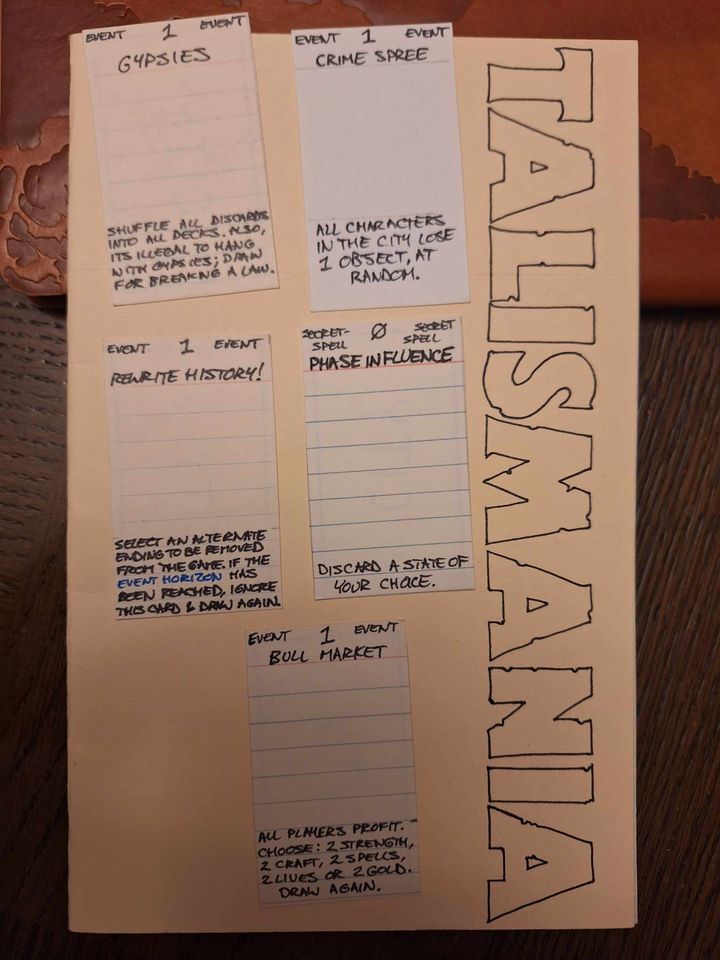 EVENT 1 EVENT
GYPSIES
SHUFFLE ALL DISCARDS
INTO ALL DECKS. ALSO,
ITS ILLEGAL TO HANG
WITH GYPSIES; DRAW
FOR BREAKING A LAW.
EVENT 1 EVENT
CRIME SPREE
ALL CHARACTERS
IN THE CITY LOSE
1 OBJECT, AT
RANDOM.
EVENT 1 EVENT
REWRITE HISTORY!
SELECT AN ALTERNATE
ENDING TO BE REMOVED
FROM THE GATE. IF THE
EVENT HORIZON HAS
BEEN REACHED, IGNORE
THIS CARD & DRAW AGAIN.
SECRET- Ø SECRET
SPELL SPELL
PHASE INFLUENCE
DISCARD A STATE OF
YOUR CHOICE.
EVENT 1 EVENT
BULL MARKET
ALL PLAYERS PROFIT.
CHOOSE: 2 STRENGTH,
2 CRAFT, 2 SPELLS,
2 LIVES OR 2 GOLD.
DRAW AGAIN.
TALISMANIA